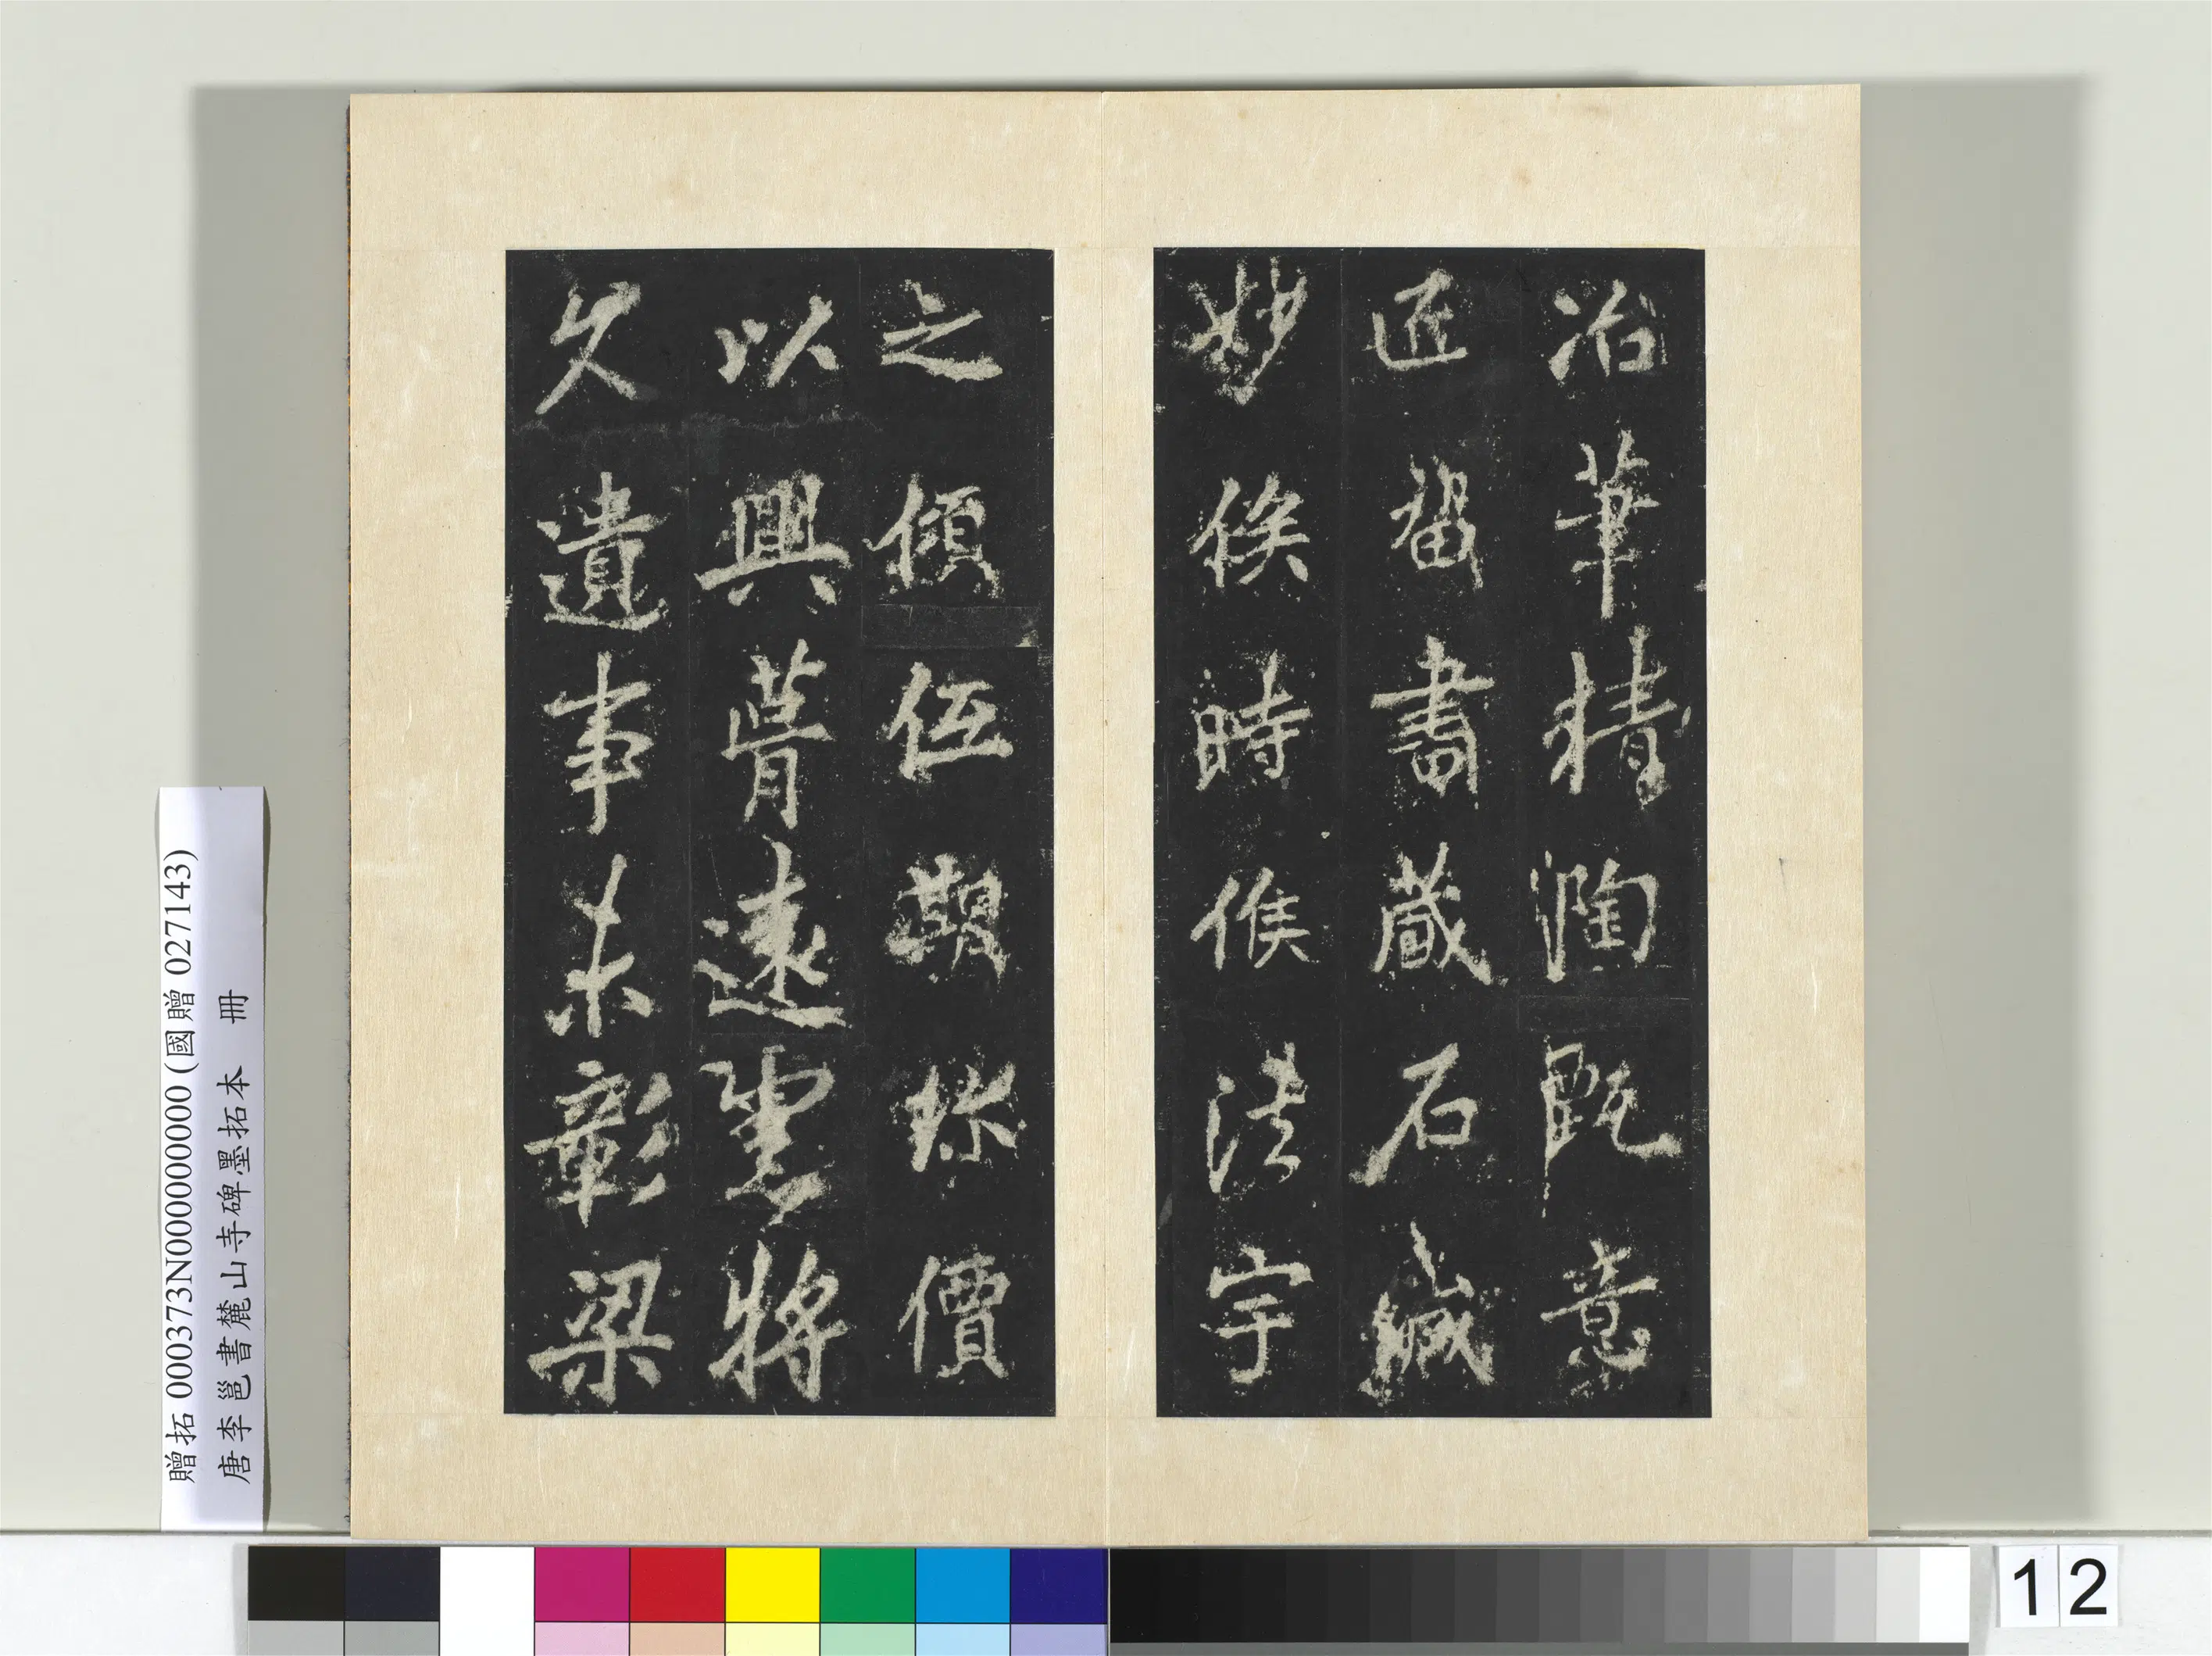 冶華精陶甄意
匠留畫藏石緘
妙俟時候法宇
之傾低期珍價
以興遠將
久遺事未彰梁
贈拓 000373N000000000 (國贈 027143)
唐李邕書麓山寺碑墨拓本 冊
12